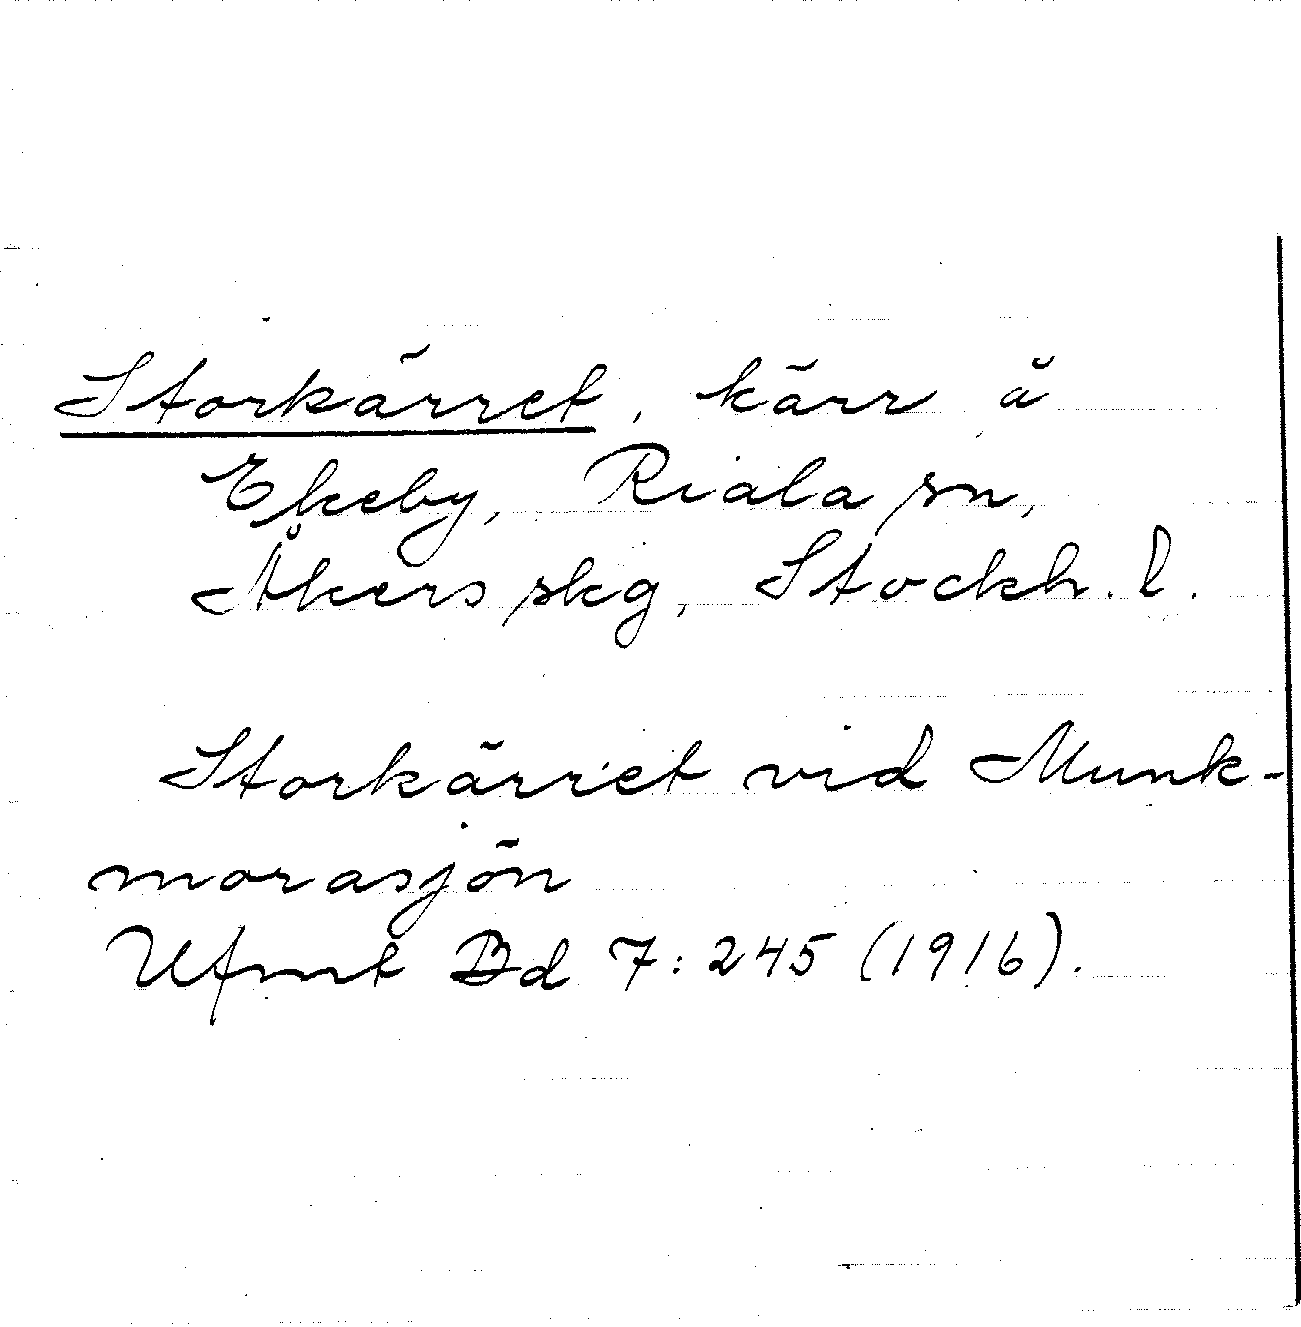 Storkärret, kärr å
Ekeby, Riala sn,
Åkers skg, Stockh. l.
Storkärret vid Munk-
morasjön
Ufmt Bd 7:245 (1916).